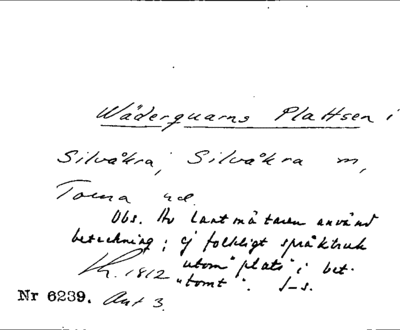 Wäderquarns Plattsen i
Silvåkra, Silvåkra sn,
Torna hd.
Obs. Av lantmätaren använd
beteckning; ej folkligt språkbruk
utom "plats" i bet.
"tomt". J-s.
Lh. 1812
Nr 6239. Akt 3.